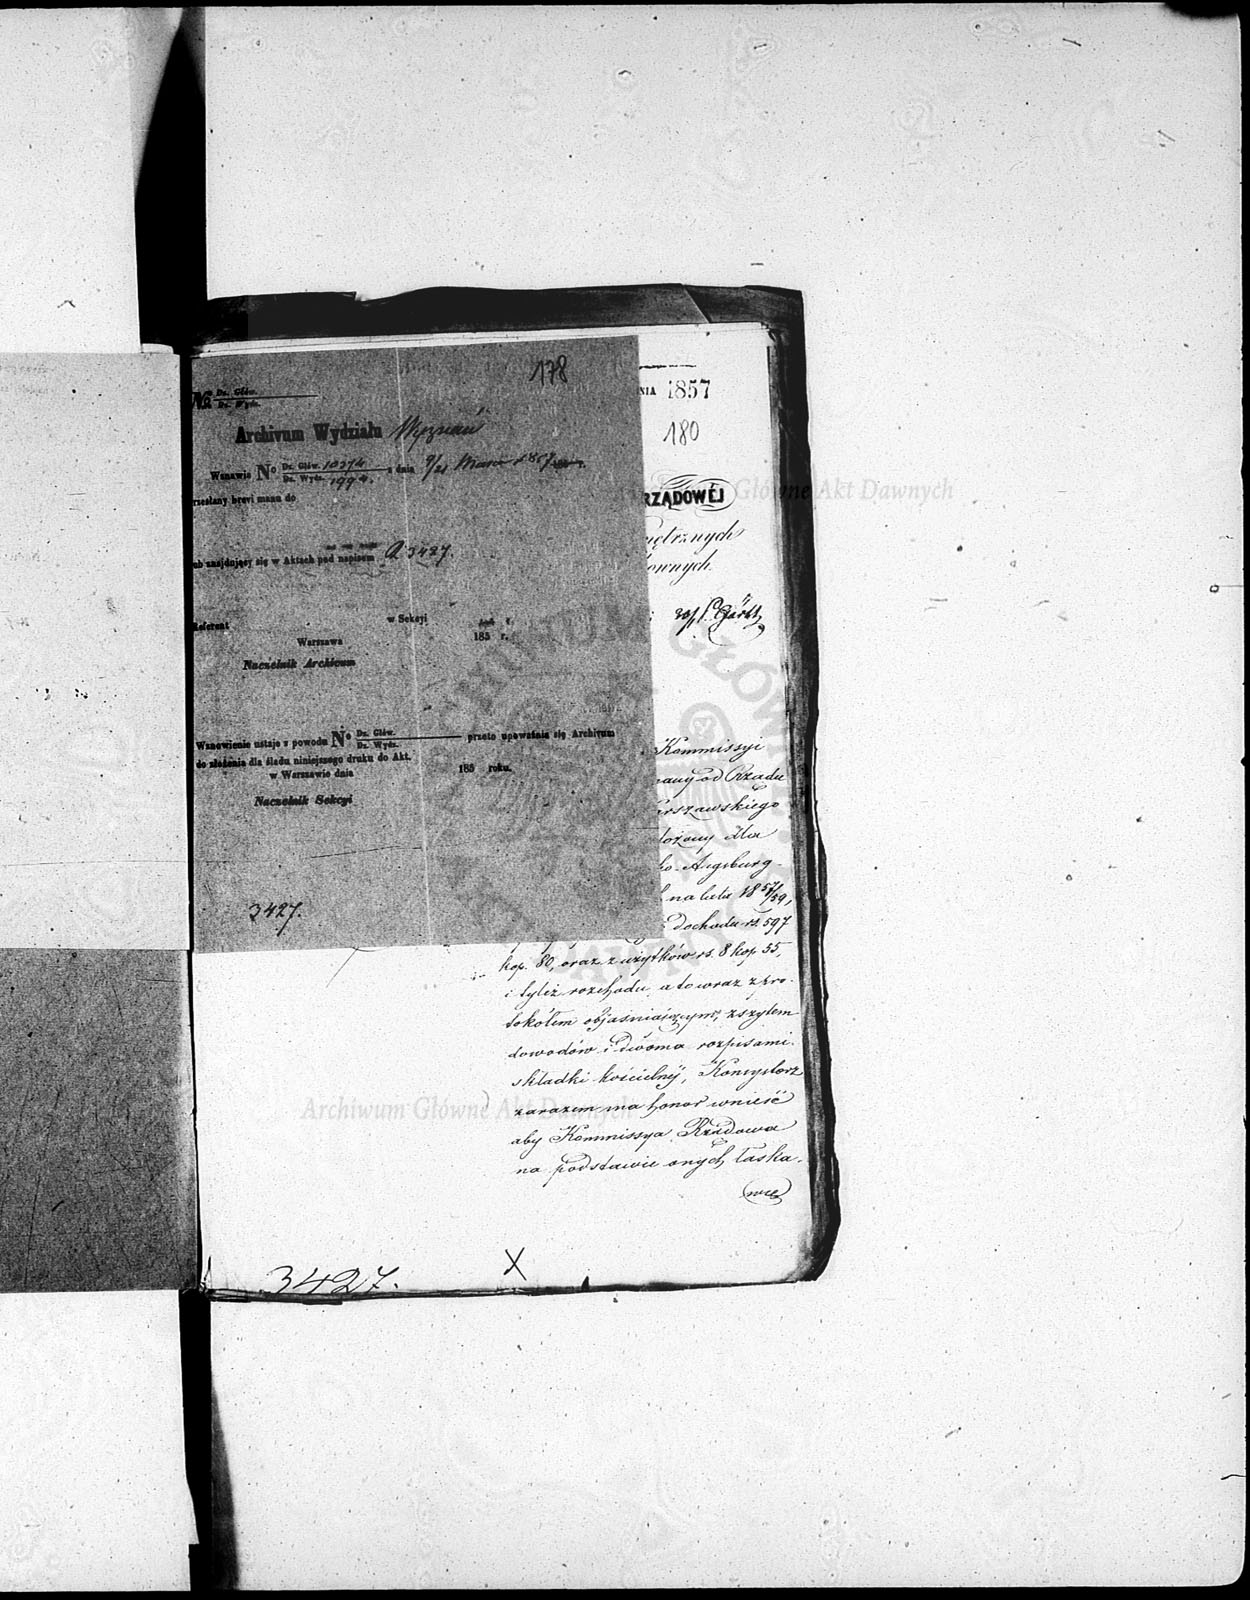 178
No Dz. Głów.
Dz. Wydz.
Archivum Wydziału Wyznań
Wznawia No Dz. Głów. 10274 z dnia 9/21 Marca 1857 r.
Dz. Wydz. 1994.
rzesłany brevi manu do
ub znajdujący się w Aktach pod napisem Q 3427.
Referent w Sekcyi
185 r.
Warszawa
Naczelnik Archivum
Wznowienie ustaje z powodu No Dz. Głów. przeto upoważnia się Archivum
Dz. Wydz.
do złożenia dla śladu niniejszego druku do Akt.
w Warszawie dnia 185 roku.
Naczelnik Sekcyi
3427.
NIA 1857
180
RZĄDOWÉJ
nętrznych
ownych.
Kommissyi
any od Rządu
arszawskiego
łożony dla
ko-Augsburg-
na lata 1857/59,
Dochodu rs. 597
kop. 80, oraz z użytków rs. 8 kop. 55,
i tyleż rozchodu, a to wraz z pro-
tokółem objaśniającym, zszytem
dowodów i dwoma rozpisami
składki kościelnéj, Konsystorz
zarazem ma honor wnieść
aby Kommissya Rządowa
na podstawie onych łaska-
wie
3427. X
Archiwum Główne Akt Dawnych
Archiwum Główne Akt Dawnych